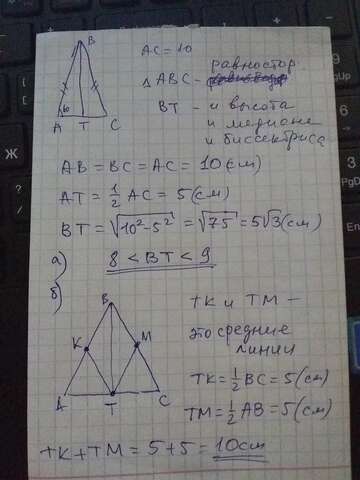 B
AC = 10
△ABC - равностор
BT - и высота
и медиана
и биссектриса
60
A T C
AB = BC = AC = 10 (см)
AT = 1/2 AC = 5 (см)
BT = √(10² - 5²) = √75 = 5√3 (см)
а) 8 < BT < 9
б)
B
K M
A T C
TK и TM -
это средние
линии
TK = 1/2 BC = 5 (см)
TM = 1/2 AB = 5 (см)
TK + TM = 5 + 5 = 10 см